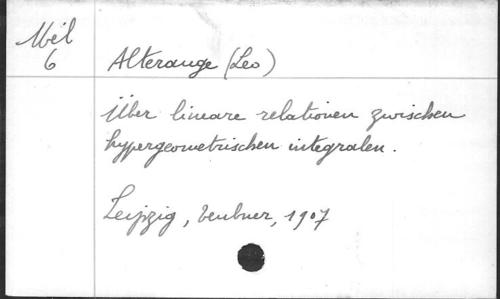 Mél
6
Alterauge (Leo)
Über lineare relationen zwischen
hypergeometrischen integralen.
Leipzig, Teubner, 1907